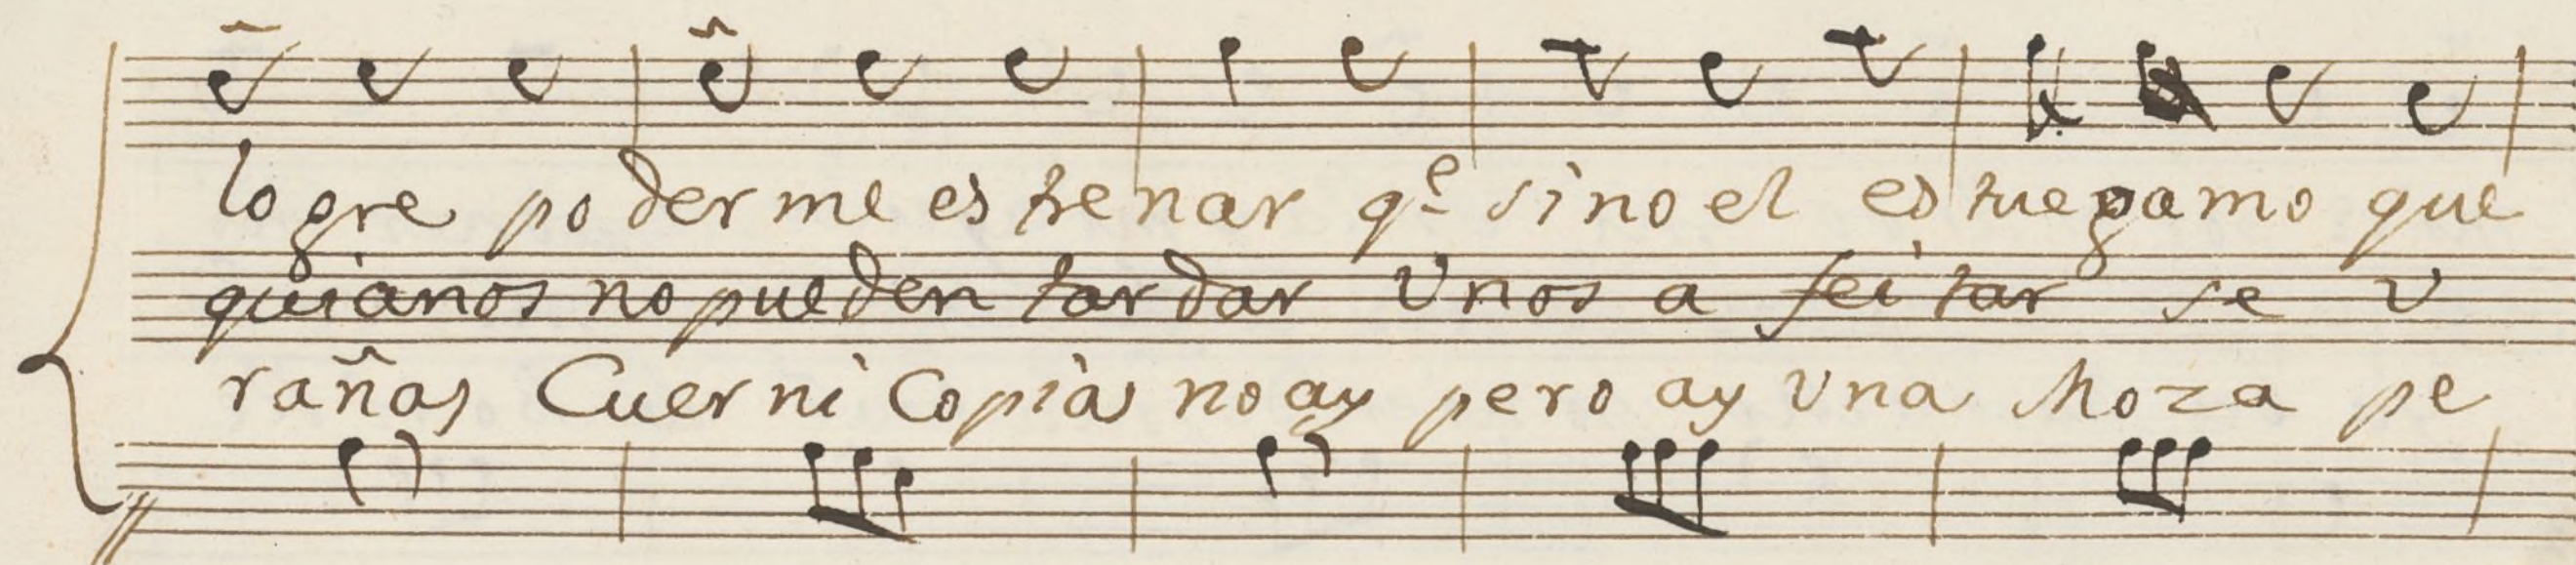 logre poder me estrenar q.e sino el estuegamo que
quianos no pueden tardar Unos afeitarse v
rañas Cuernicopias no ay pero ay una Moza pe